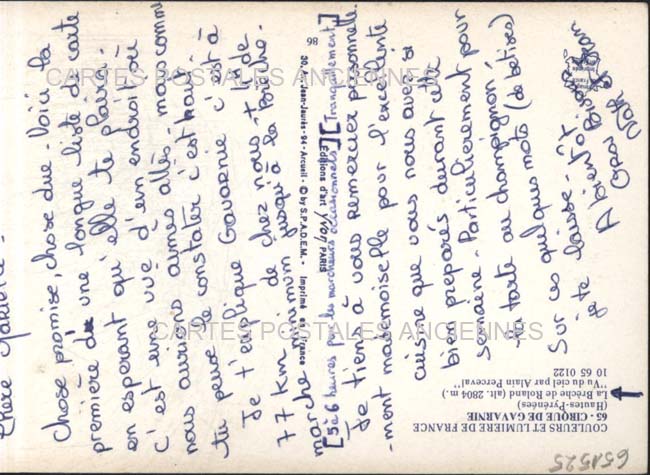 Chère
Chose promise, chose due - Voici la
première d'une longue liste de carte
en esperant qu'elle te plaira -
C'est une vue d'un endroit où
nous aurions aimés allés, mais comme
tu peux le constater c'est haut
Je t'explique Gavarnie c'est à
77 km de chez nous + 1h de
marche minimum jusqu'à la Brèche.
[5 à 6 heures pour les marcheurs occasionnels] [Tranquillement]
Je tiens à vous remercier personnelle
-ment mademoiselle pour l'excellente
cuisine que vous nous avez si
bien préparés durant cette
semaine - Particulièrement pour
la tarte au champignon
Sur ces quelques mots (de bêtises)
je te laisse -
A bientôt
Gros Bisous
86
Editions d'art yvon PARIS
Jean-Jaurès - 94 - Arcueil - © by S.P.A.D.E.M. - Imprimé en France
COULEURS ET LUMIERE DE FRANCE
65 - CIRQUE DE GAVARNIE
(Hautes-Pyrénées)
La Brèche de Roland (alt. 2804 m.)
"Vu du ciel par Alain Perceval"
10 65 0122
651525
CARTES POSTALES ANCIENNES
CARTES POSTALES ANCIENNES